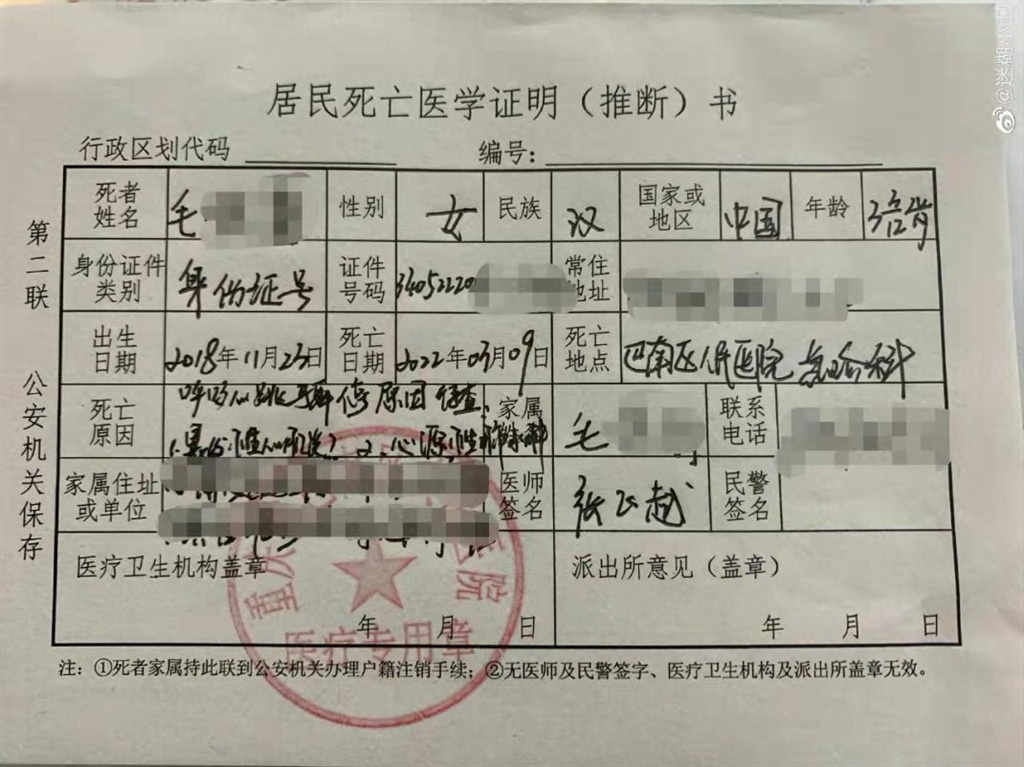 居民死亡医学证明（推断）书
行政区划代码 编号：
第二联 公安机关保存
死者姓名 毛 性别 女 民族 汉 国家或地区 中国 年龄
身份证件类别 身份证号 证件号码 34052220 常住地址
出生日期 2018年11月23日 死亡日期 2022年03月09日 死亡地点 巴南区人民医院急诊科
死亡原因 呼吸心跳骤停原因待查： 家属 毛 联系电话
家属住址或单位 医师签名 张 民警签名
医疗卫生机构盖章 派出所意见（盖章）
年 月 日 年 月 日
重庆 医院
医疗专用章
注：①死者家属持此联到公安机关办理户籍注销手续；②无医师及民警签字、医疗卫生机构及派出所盖章无效。